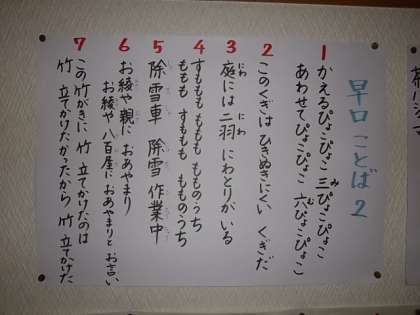 早口ことば 2
1
かえるぴょこぴょこ 三ぴょこぴょこ
あわせてぴょこぴょこ 六ぴょこぴょこ
2
このくぎは ひきぬきにくい くぎだ
3
庭には 二羽 にわとりがいる
4
すももも ももも もものうち
ももも すももも もものうち
5
除雪車 除雪 作業中
6
お綾や親に おあやまり
お綾や 八百屋に おあやまりと お言い
7
この竹がきに 竹 立てかけたのは
竹 立てかけたかったから 竹 立てかけた